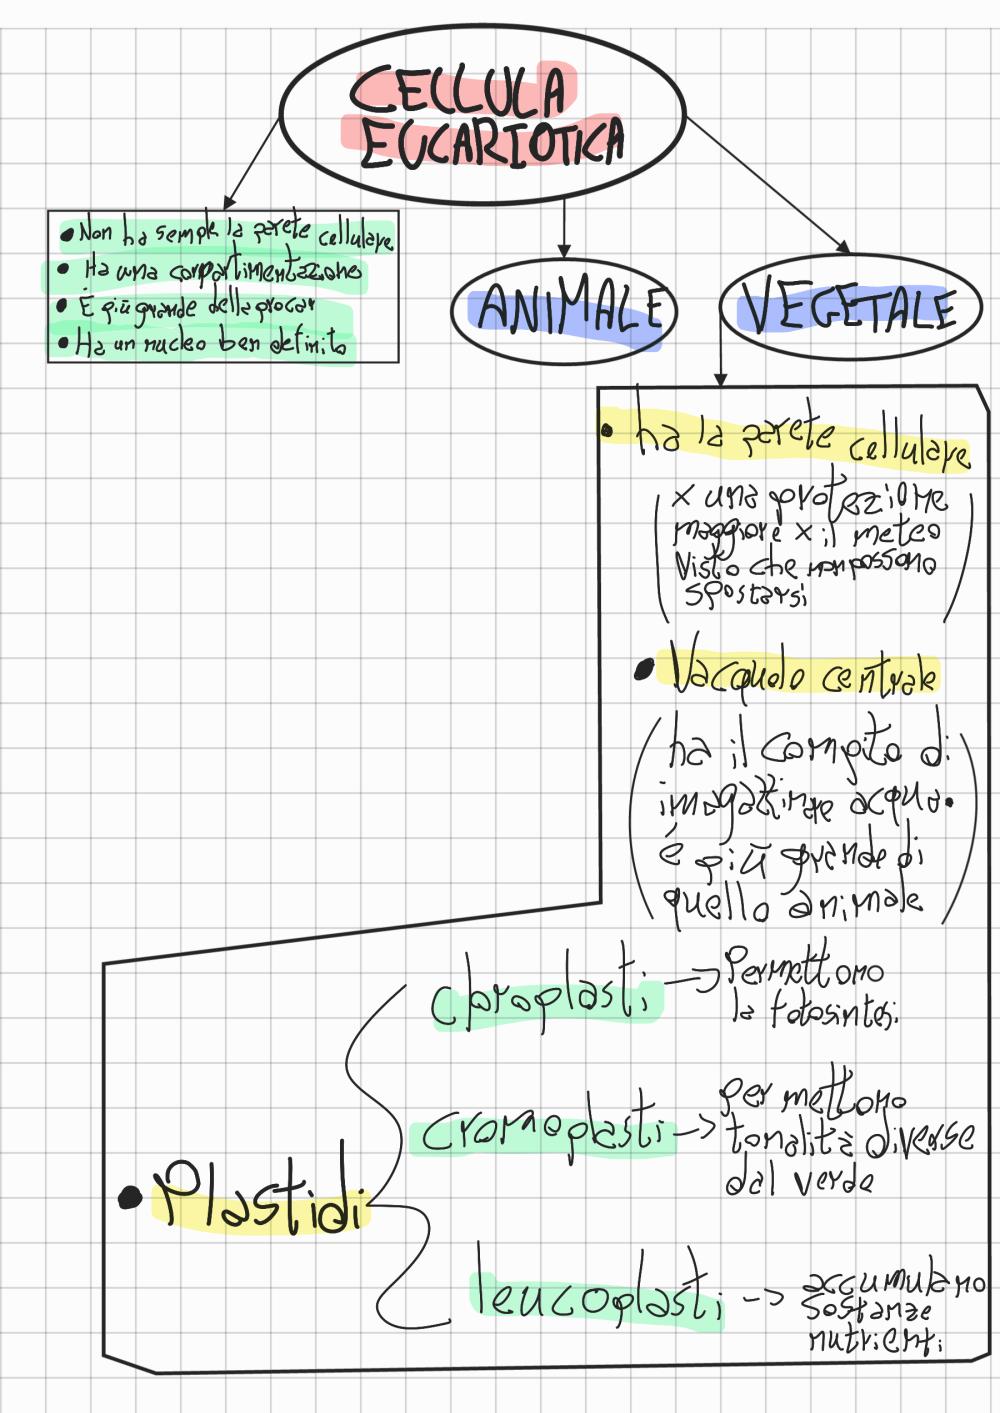 CELLULA
EUCARIOTICA
• Non ha sempre la parete cellulare
• Ha una compartimentazione
• È più grande della procar
• Ha un nucleo ben definito
ANIMALE
VEGETALE
• ha la parete cellulare
(x una protezione
maggiore x il meteo
visto che non possono
spostarsi)
• Vacquolo centrale
(ha il compito di
imagazzinare acqua.
é più grande di
quello animale)
• Plastidi
cloroplasti → Permettono
la fotosintesi
cromoplasti → permettono
tonalità diverse
dal verde
leucoplasti --> accumulano
sostanze
nutrienti